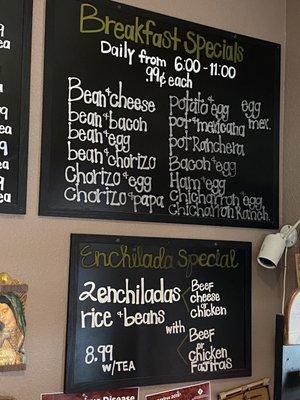 Breakfast Specials
Daily from 6:00-11:00
.99¢ each
Bean & cheese
bean & bacon
bean & egg
bean & chorizo
Chorizo & egg
Chorizo & papa
Potato & egg
pot & mexicana
pot Ranchera
Bacon & egg
Ham & egg
Chicharron & egg
Chicharron Ranch.
egg
mex.
Enchilada Special
2 enchiladas
rice & beans
with
8.99
w/TEA
Beef
cheese
or
chicken
Beef
or
chicken
Fajitas